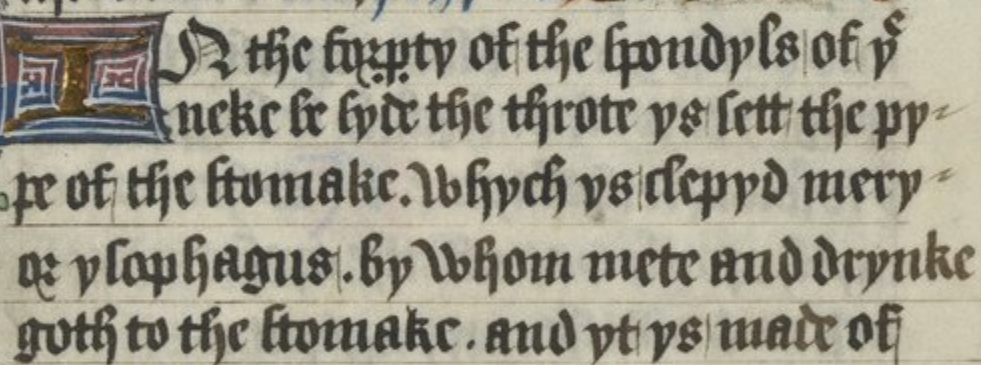 IN the forꝑty of the spondyls of yͤ
neke be syde the throte ys sett the py-
pe of the stomake. Whych ys clepyd mery-
or ysophagus. by Whom mete and drynke
goth to the stomake. and yt ys made of